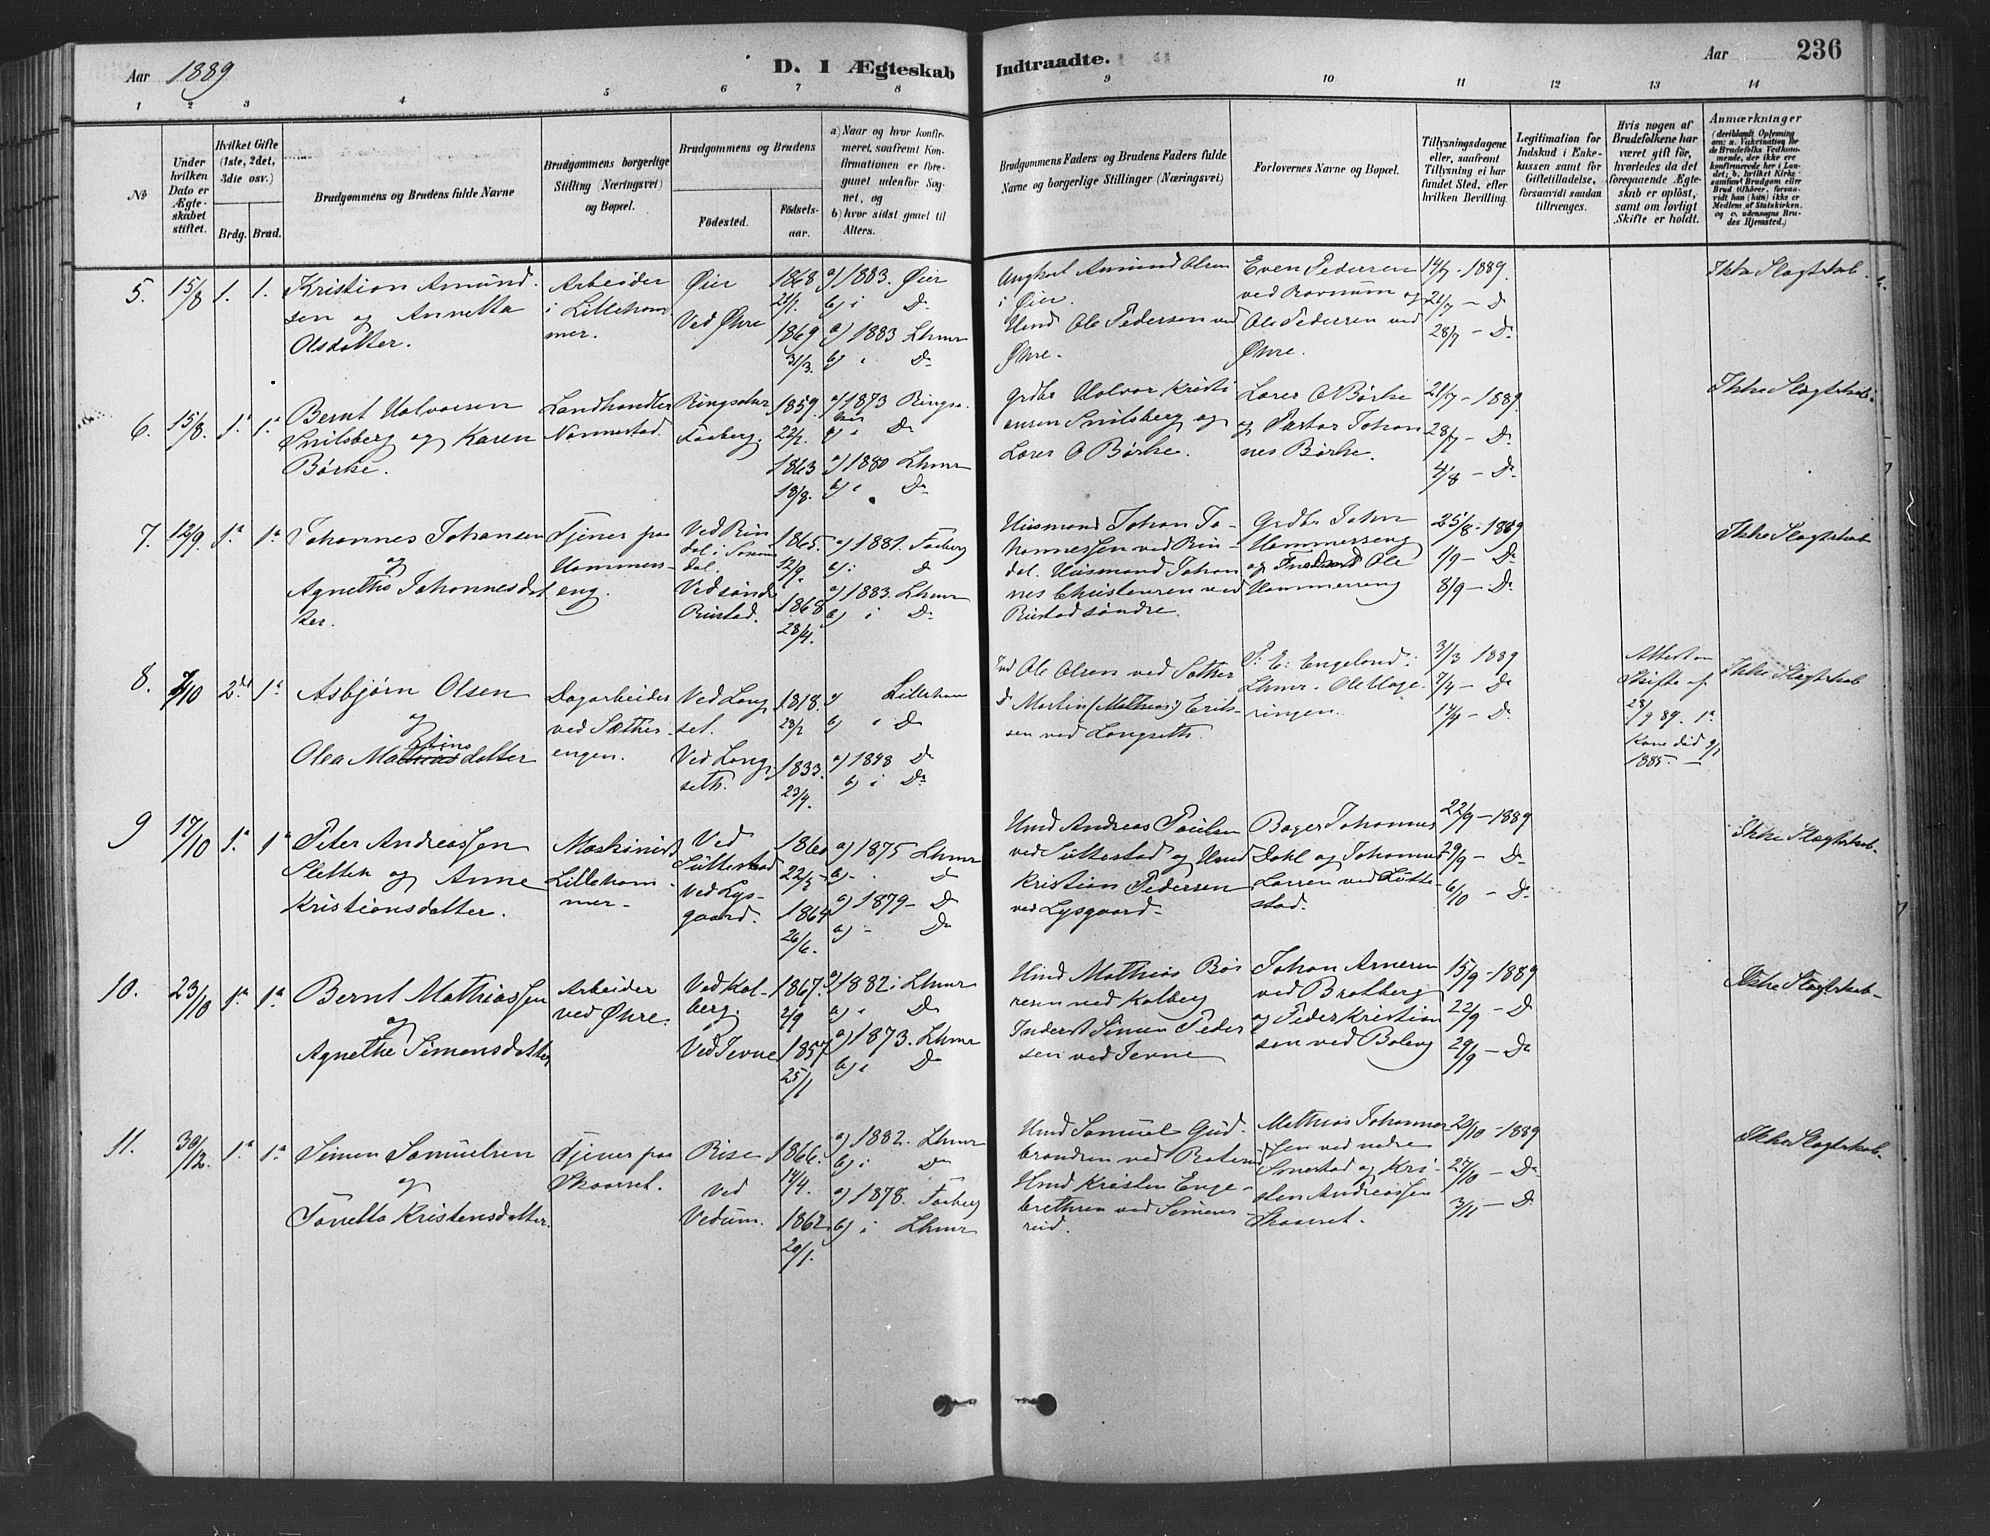 Aar 1889
D. I Ægteskab
Indtraadte.
Aar
236
1 2 3 4 5 6 7 8 9 10 11 12 13 14
No
Under
hvilken
Dato er
Ægte-
skabet
stiftet.
Hvilket Gifte
(1ste, 2det,
3die osv.)
Brdg. Brud.
Brudgommens og Brudens fulde Navne
Brudgommens borgerlige
Stilling (Næringsvei)
og Bopæl.
Brudgommens og Brudens
Fødested.
Fødsels-
aar.
a) Naar og hvor konfir-
meret, saafremt Kon-
firmationen er fore-
gaaet udenfor Sog-
net, og
b) hvor sidst gaaet til
Alters.
Brudgommens Faders og Brudens Faders fulde
Navne og borgerlige Stillinger (Næringsvei)
Forlovernes Navne og Bopæl.
Tillysningsdagene
eller, saafremt
Tillysning ei har
fundet Sted, efter
hvilken Bevilling.
Legitimation for
Indskud i Enke-
kassen samt for
Giftetilladelse,
forsaavidt saadan
tiltrænges.
Hvis nogen af
Brudefolkene har
været gift før,
hvorledes da det
foregaaende Ægte-
skab er opløst,
samt om lovligt
Skifte er holdt.
Anmærkninger
(deriblandt Oplysning
om: a. Vakcination for
de Brudefolks Vedkom-
mende, der ikke ere
konfirmerede her i Lan-
det; b. hvilket Kirke-
samfund Brudgom eller
Brud tilhører, forsaa-
vidt han (hun) ikke er
Medlem af Statskirken,
og c. udensogns Bru-
des Hjemsted.)
5. 15/8 1. 1.
Kristian Amund
sen og Annetta
Olsdatter.
Arbeider
i Lilleham
mer.
Øier
Ved Øhre
1868
21/1.
1869
31/3.
a) 1883. Øier
b) i Do
a) 1883 Lhmr
b) i Do
Ungkarl Amund Olsen
i Øier.
Hmd Ole Pedersen ved
Øhre.
Even Pedersen
ved Ravnum og
Ole Pedersen ved
Øhre.
14/7 - 1889.
21/7 - Do
28/7 - Do
Ikke Slagtskab.
6. 15/8. 1. 1.
Bernt Halvorsen
Snilsberg og Karen
Børke.
Landhandler
Nannestad.
Ringsaker
Faaberg.
1859.
22/2.
1863
18/8.
a) 1873 Ringsa-
ker
b) i Do
a) 1880 Lhmr
b) i Do
Grdbr Halvor Kristi
ansen Snilsberg og
Lærer O Børke.
Lærer O Børke
og Pastor Johan
nes Børke.
21/7 - 1889.
28/7 - Do
4/8 - Do
Ikke Slagtskab.
7. 12/9. 1a 1a
Johannes Johansen
og
Agnethe Johannesdat
ter.
Tjener paa
Hammers-
eng.
Ved Rin
dal i Saxum
dal.
Ved søndr
Rustad.
1865.
12/9.
1868
28/4.
a) 1881. Faaberg
b) i Do
a) 1883. Lhmr
b) i Do
Husmand Johan Jo-
hannessen ved Rin-
dal. Husmand Johan
nes Christensen ved
Rustad søndre.
Grdbr John
Hammerseng
og Ole
Hammerseng
25/8 - 1889
1/9 - Do
8/9 - Do
Ikke Slagtskab
8. /10 2den 1a
Asbjørn Olsen
og
Olea Ma datter
Dagarbeider
ved Sæther
engen.
Ved Lang
set.
Ved Lang
seth.
1818.
23/2
1833.
23/4.
a) Lilleham
b) i Do
a) 1848 Do
b) i Do
Ole Olsen ved Sæther
Martin (Mathias) Erik-
sen ved Langseth.
P: E: Engeland:
Lhmr. Ole Hage
ringen.
31/3 1889
7/4 - Do
14/4 - Do
Attest om
Skifte af
28/9 89. 1a
Kone død 9/1
1885. -
Ikke Slagtskab
9 17/10 1a 1a
Peter Andreassen
Sletten og Anne
Kristiansdatter.
Maskinist
Lilleham
mer.
Ved
Suttestad
Ved Lys-
gaard.
1860
22/3 -
1864
26/6.
a) 1875 Lhmr
b) - Do
a) 1879 - Do
b) - Do
Hmd Andreas Poulsen
ved Suttestad og Hmd
Kristian Pedersen
ved Lysgaard.
Bager Johannes
Dahl og Johannes
Larsen ved Sutte-
stad.
22/9 - 1889
29/9 - Do
6/10 - Do
Ikke Slagtskab.
10. 23/10 1a 1a
Bernt Mathiassen
og
Agnethe Simensdatter
Arbeider
ved Øhre.
Ved Kol-
berg.
Ved Jevne
1867.
2/9
1857
25/1
a) 1882 i Lhmr
b) i Do
a) 1873. Lhmr
b) i Do
Hmd Mathias Bør
resen ved Kolberg
Inderst Simen Peder
sen ved Jevne
Johan Arnesen
ved Bratberg
og Peder Kristian
sen ved Boleng
15/9 - 1889
22/9 - Do
29/9 - Do
Ikke Slagtskab.
11. 30/12. 1a 1a
Simen Samuelsen
og
Tonetta Kristensdatter.
Tjener paa
Skaarset.
Rise
Ved
Vedum.
1866.
14/4.
1862
20/1.
a) 1882. Lhmr
b) i Do
a) 1878. Faaberg
b) i Lhmr
Hmd Samuel Gud-
brandsen ved
Hmd Kristen Enge-
brethsen ved Simens-
rud.
Mathias Johannes
sen ved nedre
Smestad og Kri-
sten Andreassen
Skaarset.
20/10 - 1889
27/10 - Do
3/11 - Do
Ikke Slagtskab.